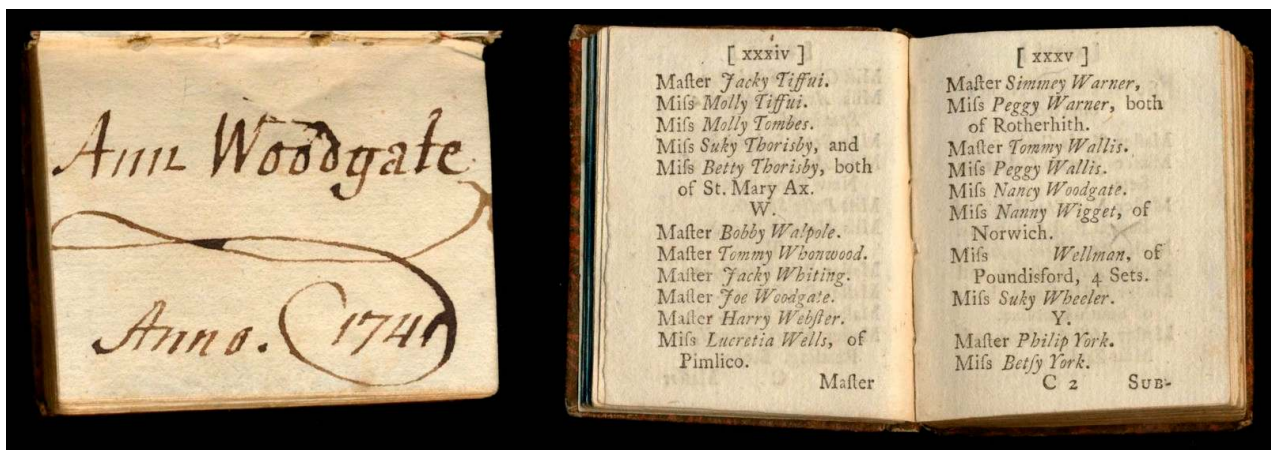 Ann Woodgate
Anno. 1741
[ xxxiv ]
Maſter Jacky Tiffui.
Miſs Molly Tiffui.
Miſs Molly Tombes.
Miſs Suky Thorisby, and
Miſs Betty Thorisby, both
of St. Mary Ax.
W.
Maſter Bobby Walpole.
Maſter Tommy Whonwood.
Maſter Jacky Whiting.
Maſter Joe Woodgate.
Maſter Harry Webſter.
Miſs Lucretia Wells, of
Pimlico.
Maſter
[ xxxv ]
Maſter Simmey Warner,
Miſs Peggy Warner, both
of Rotherhith.
Maſter Tommy Wallis.
Miſs Peggy Wallis.
Miſs Nancy Woodgate.
Miſs Nanny Wigget, of
Norwich.
Miſs Wellman, of
Poundisford, 4 Sets.
Miſs Suky Wheeler.
Y.
Maſter Philip York.
Miſs Betſy York.
C 2 SUB-